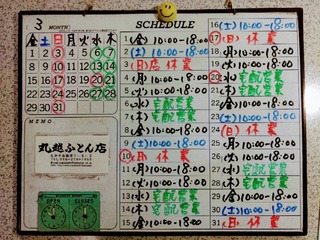 3 MONTH
金 土 日 月 火 水 木
1 2 3 4 5 6 7
8 9 10 11 12 13 14
15 16 17 18 19 20 21
22 23 24 25 26 27 28
29 30 31
MEMO
丸越ふとん店
OPEN CLOSED
SCHEDULE
1 (金) 10:00-18:00
2 (土) 10:00-18:00
3 (日) 店 休 業
4 (月) 10:00-18:00
5 (火) 10:00-18:00
6 (水) 宅配営業
7 (木) 宅配営業
8 (金) 10:00-18:00
9 (土) 10:00-18:00
10 (日) 休 業
11 (月) 10:00-18:00
12 (火) 10:00-18:00
13 (水) 宅配営業
14 (木) 宅配営業
15 (金) 10:00-18:00
16 (土) 10:00-18:00
17 (日) 休 業
18 (月) 10:00-18:00
19 (火) 10:00-18:00
20 (水) 宅配営業
21 (木) 宅配営業
22 (金) 10:00-18:00
23 (土) 10:00-18:00
24 (日) 休 業
25 (月) 10:00-18:00
26 (火) 10:00-18:00
27 (水) 宅配営業
28 (木) 宅配営業
29 (金) 10:00-18:00
30 (土) 10:00-18:00
31 (日) 休 業